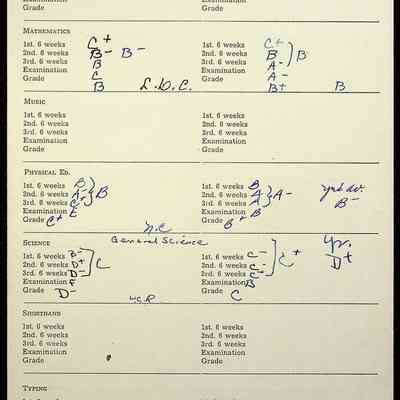 Grade Grade
MATHEMATICS
1st. 6 weeks C+ 1st. 6 weeks C+
2nd. 6 weeks B- B- 2nd. 6 weeks B B
3rd. 6 weeks B 3rd. 6 weeks A-
Examination C Examination A-
Grade B L.D.C. Grade B+ B
MUSIC
1st. 6 weeks 1st. 6 weeks
2nd. 6 weeks 2nd. 6 weeks
3rd. 6 weeks 3rd. 6 weeks
Examination Examination
Grade Grade
PHYSICAL ED.
1st. 6 weeks B 1st. 6 weeks B
2nd. 6 weeks A- B 2nd. 6 weeks A A- B-
3rd. 6 weeks C+ 3rd. 6 weeks A
Examination E Examination B
Grade C+ Grade B+
N.C.
SCIENCE General Science Yr.
1st. 6 weeks B- 1st. 6 weeks C- D+
2nd. 6 weeks D+ C 2nd. 6 weeks C- C+
3rd. 6 weeks D- 3rd. 6 weeks C-
Examination F Examination B
Grade D- Grade C
SHORTHAND
1st. 6 weeks 1st. 6 weeks
2nd. 6 weeks 2nd. 6 weeks
3rd. 6 weeks 3rd. 6 weeks
Examination Examination
Grade Grade
TYPING